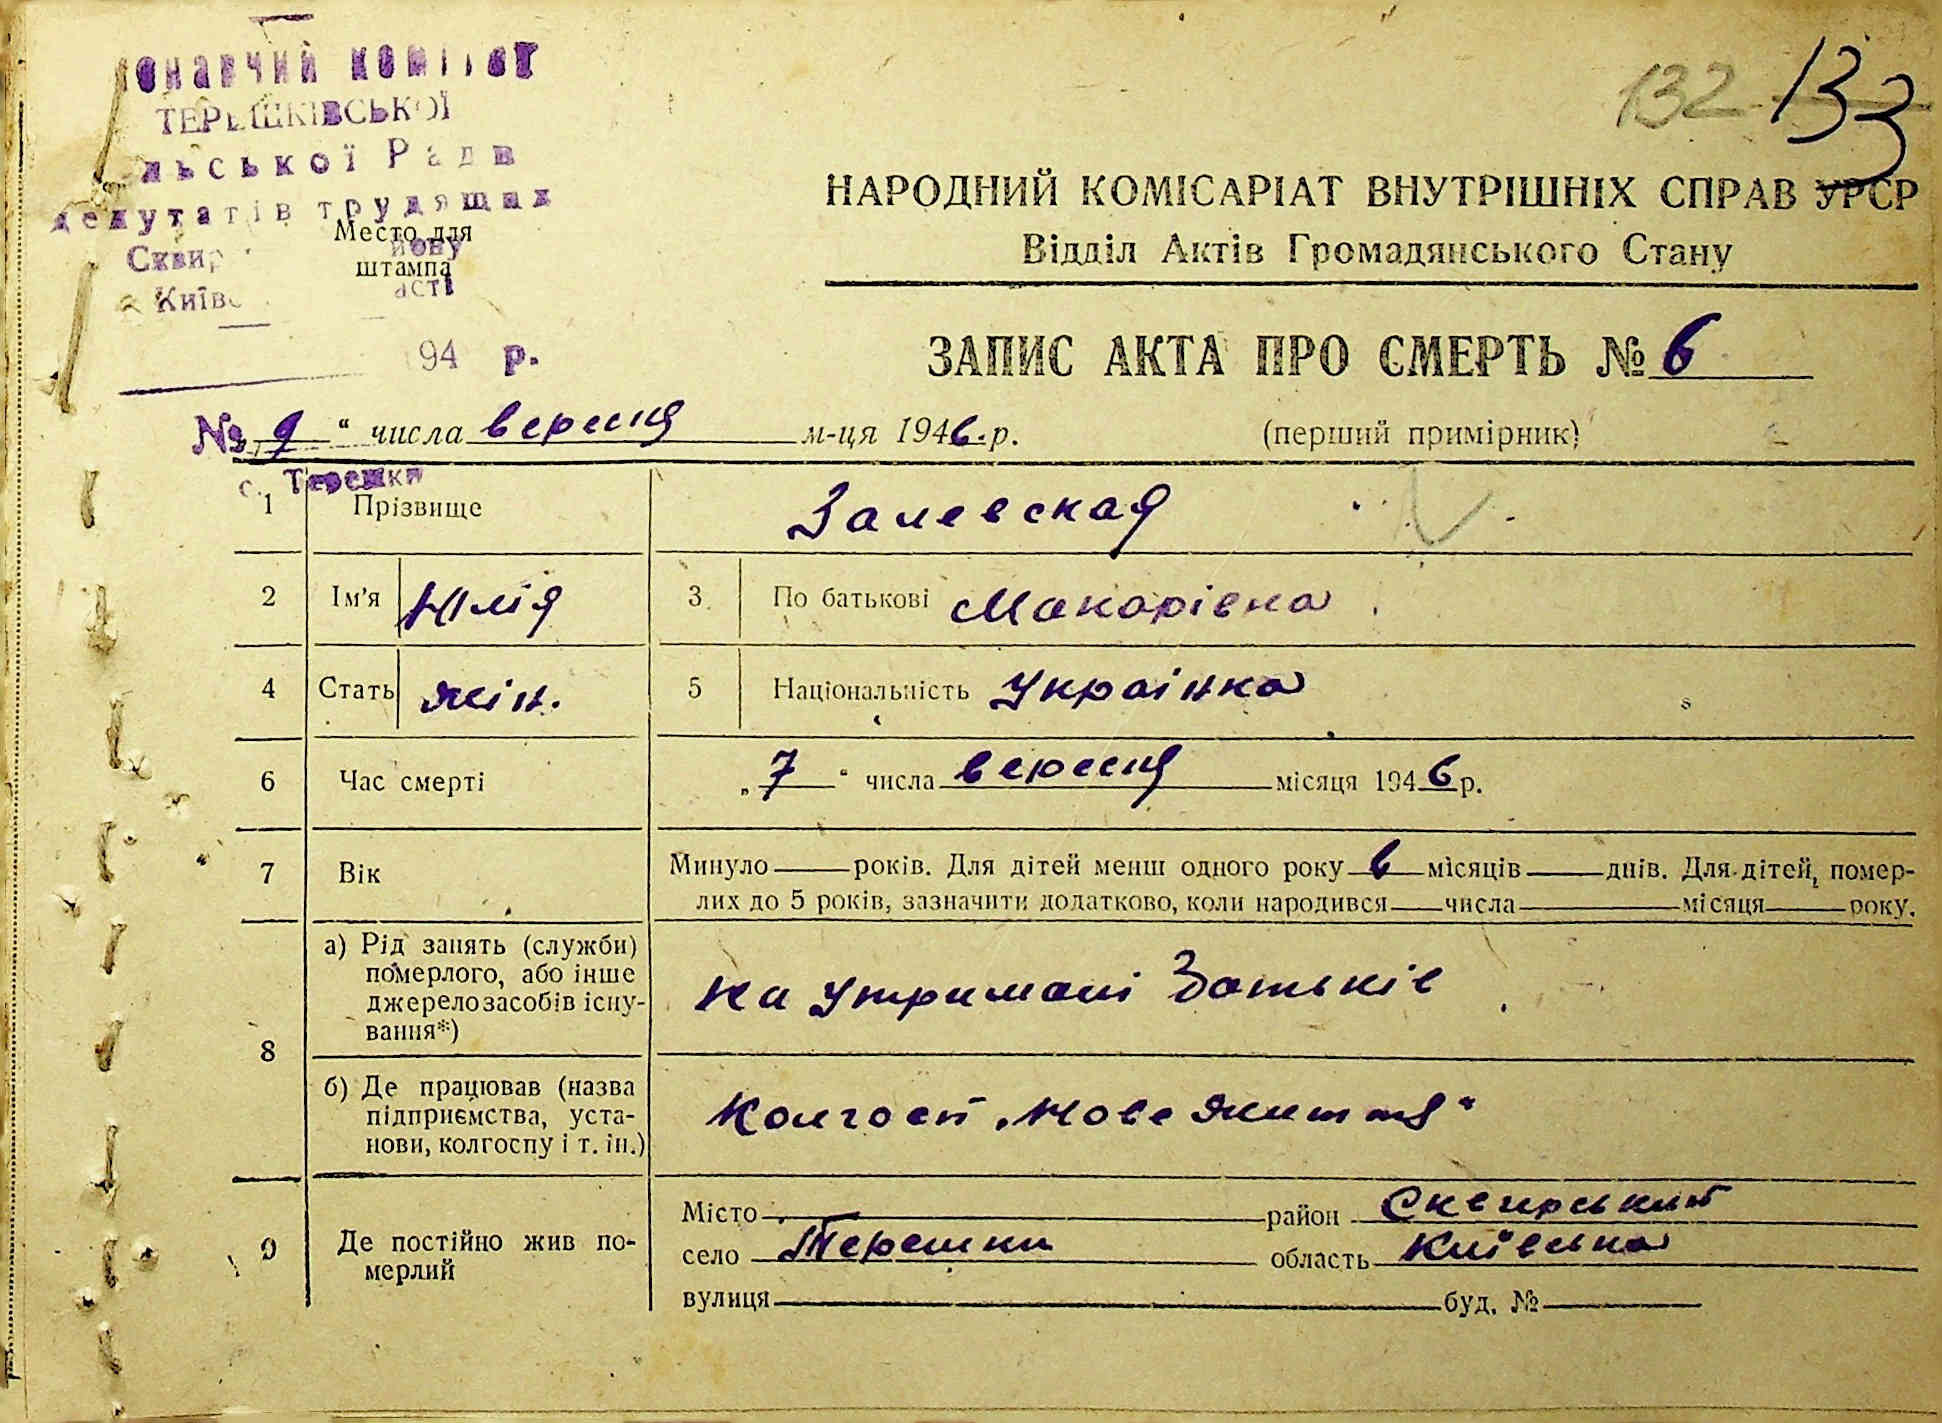 132 133
онавчий комітет
ТЕРЕШКІВСЬКОЇ
льської Ради
депутатів трудящих
Место для
штампа
Сквир йону
Київс асті
194 р.
НАРОДНИЙ КОМІСАРІАТ ВНУТРІШНІХ СПРАВ УРСР
Відділ Актів Громадянського Стану
ЗАПИС АКТА ПРО СМЕРТЬ № 6
№ „9“ числа вересня м-ця 1946.р. (перший примірник)
с. Терешки
1 Прізвище Залевская
2 Ім'я Юлія 3 По батькові Макарівна
4 Стать жін. 5 Національність Українка
6 Час смерті „7“ числа вересня місяця 1946 р.
7 Вік Минуло років. Для дітей менш одного року 6 місяців днів. Для дітей, помер-
лих до 5 років, зазначити додатково, коли народився числа місяця року.
8 а) Рід занять (служби)
померлого, або інше
джерело засобів існу-
вання*) на утримані батьків
б) Де працював (назва
підприємства, уста-
нови, колгоспу і т. ін.) Колгосп „Нове життя“
9 Де постійно жив по-
мерлий
Місто район Сквирський
село Терешки область Київська
вулиця буд. №